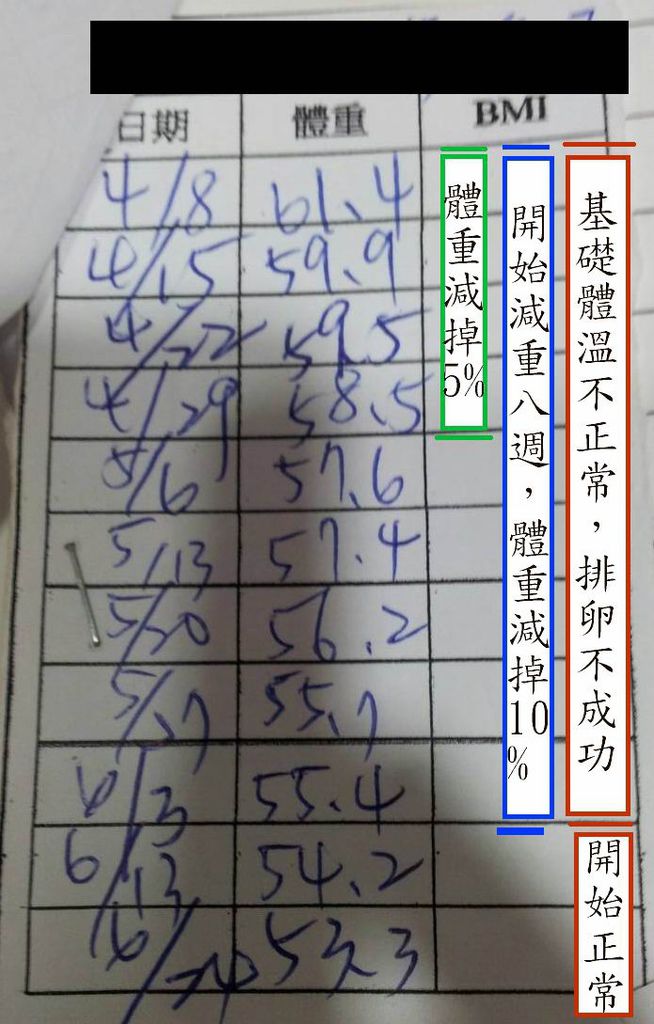 日期 體重 BMI
4/8 61.4
4/15 59.9
4/22 59.5
4/29 58.5
5/6 57.6
5/13 57.4
5/20 56.2
5/27 55.7
6/3 55.4
6/13 54.2
6/24 53.3
體重減掉5%
開始減重八週，體重減掉10%
基礎體溫不正常，排卵不成功
開始正常